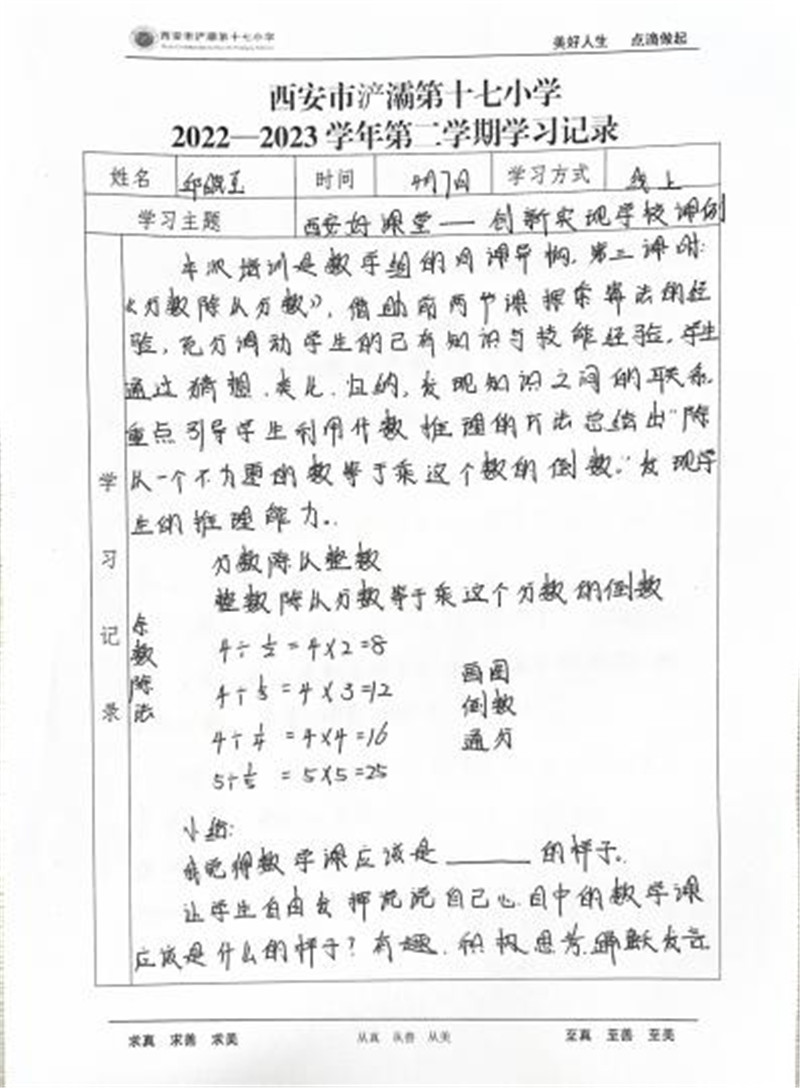 西安市浐灞第十七小学
美好人生 点滴做起
西安市浐灞第十七小学
2022—2023 学年第二学期学习记录
姓名 邱 时间 4月7日 学习方式 线上
学习主题 西安好课堂——创新实现学校课例
学习记录
本次培训是数学组的同课异构,第三课时:
《分数除以分数》,借助前两节课探索算法的经
验,充分调动学生的已有知识与技能经验,学生
通过猜想、类比、归纳,发现知识之间的联系。
重点引导学生利用代数推理的方法总结出“除
以一个不为零的数等于乘这个数的倒数。”发现学
生的推理能力。
分数除以整数
整数除以分数等于乘这个分数的倒数
数除法
4÷1/2=4×2=8
4÷1/3=4×3=12
4÷1/4=4×4=16
5÷1/5=5×5=25
画图
倒数
通分
小结:
我觉得数学课应该是______的样子。
让学生自由发挥说说自己心目中的数学课
应该是什么的样子?有趣、积极思考、踊跃发言
求真 求善 求美
从真 从善 从美
至真 至善 至美